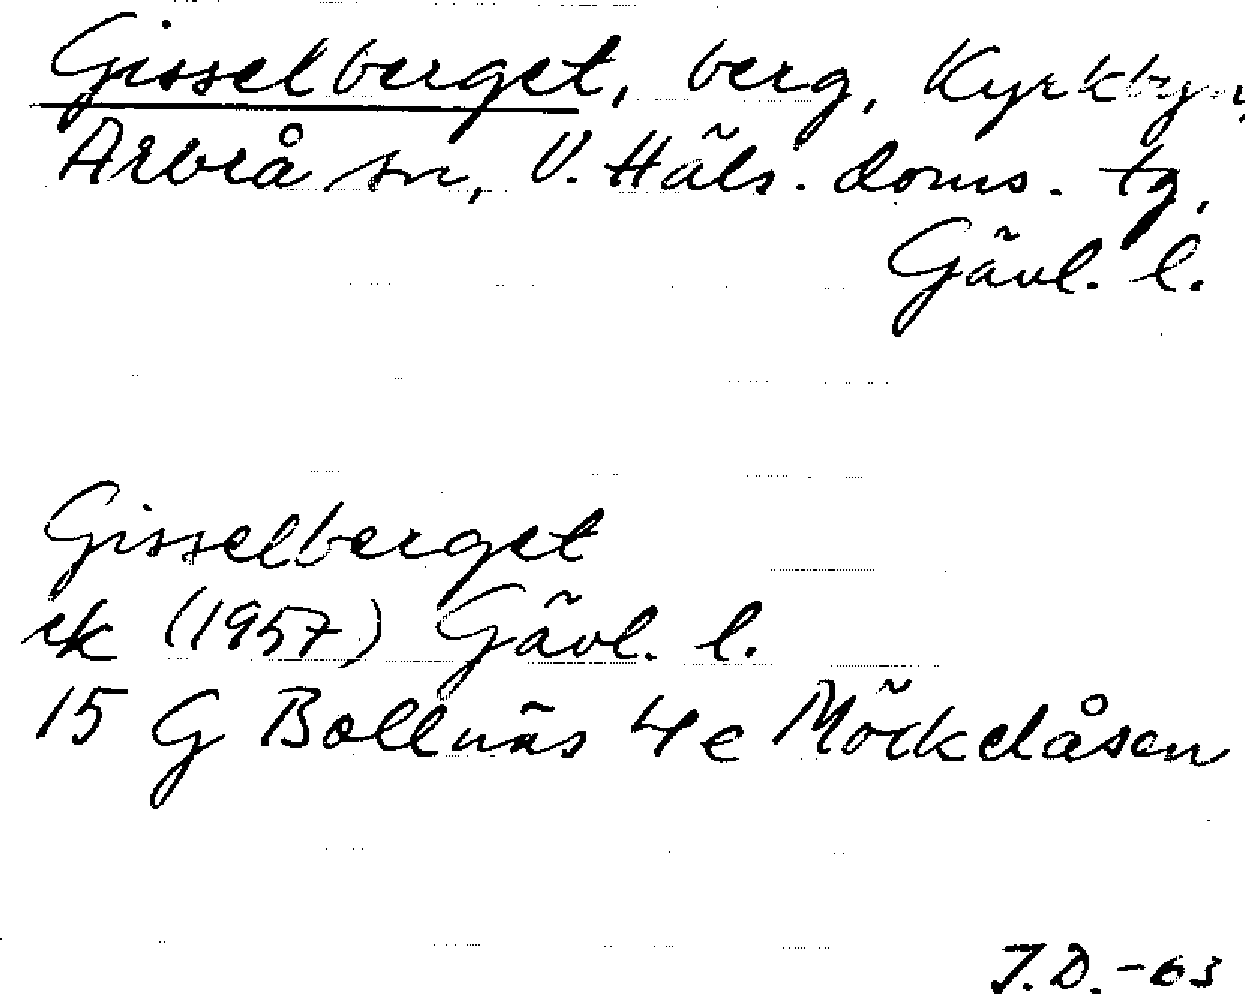 Gisselberget, berg, Kyrkbyn,
Arbrå sn, V. Häls. doms. tg,
Gävl. l.
Gisselberget
ek (1957) Gävl. l.
15 G Bollnäs 4e Möckelåsen
J.D.-63